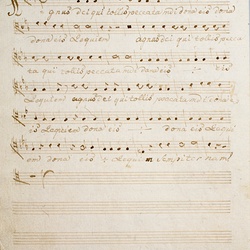 gnus dei qui tollis peccata mundi dona eis dona
dona eis Requiem agnus dei qui tollis pecca
ta qui tollis peccata mundi dona eis
Requiem agnus dei qui tollis peccata mundi dona
eis Requiem dona eis dona eis Requi
em dona eis Requiem sempiternam